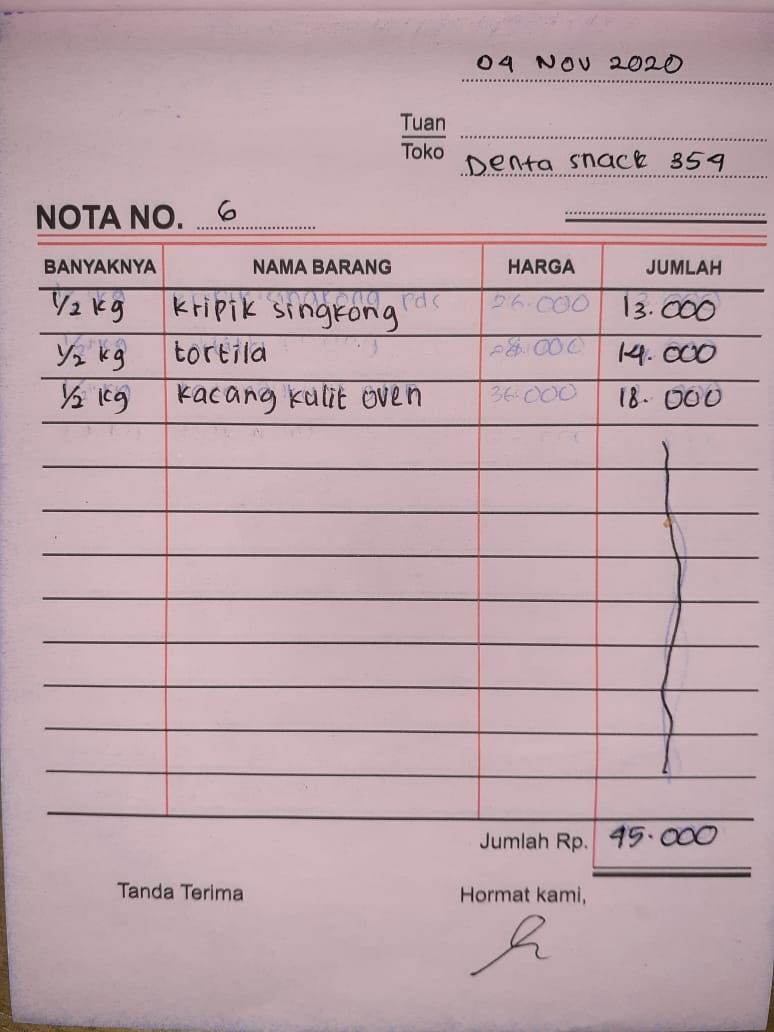 04 NOV 2020
Tuan
Toko Denta snack 354
NOTA NO. 6
BANYAKNYA NAMA BARANG HARGA JUMLAH
1/2 kg kripik singkong 26.000 13.000
1/2 kg tortila 28.000 14.000
1/2 kg kacang kulit oven 36.000 18.000
Jumlah Rp. 45.000
Tanda Terima Hormat kami,